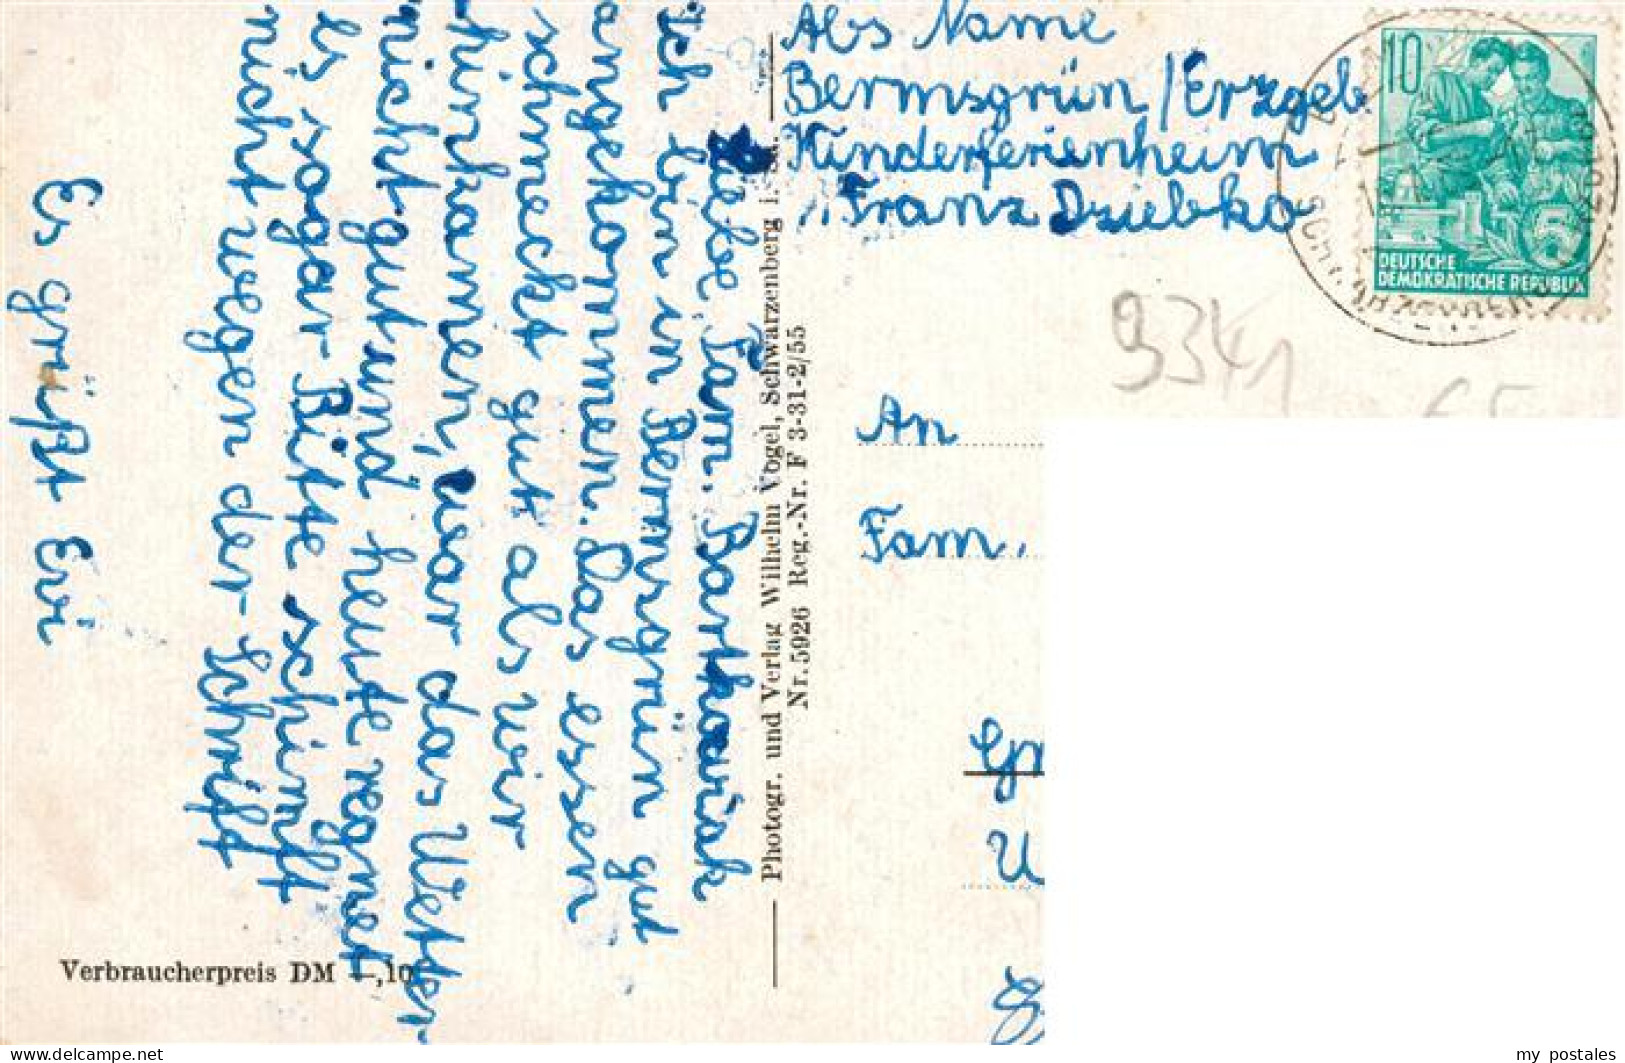 Abs Name
Bermsgrün / Erzgeb
Kinderferienheim
Franz Dziebko
10
DEUTSCHE
DEMOKRATISCHE REPUBLIK
9341
An
Fam.
Liebe Fam. Bartkowiak
Ich bin in Bermsgrün gut
angekommen. Das essen
schmeckt gut als wir
hirkamen, war das Wetter
nicht gut und heute regnet
es sogar Bitte schimft
nicht wegen der Schrift
Es grüßt Evi
Photogr. und Verlag Wilhelm Vogel, Schwarzenberg i. Sa.
Nr. 5926 Reg.-Nr. F 3-31-2/55
Verbraucherpreis DM —,10
https://www.delcampe.net
my_postales